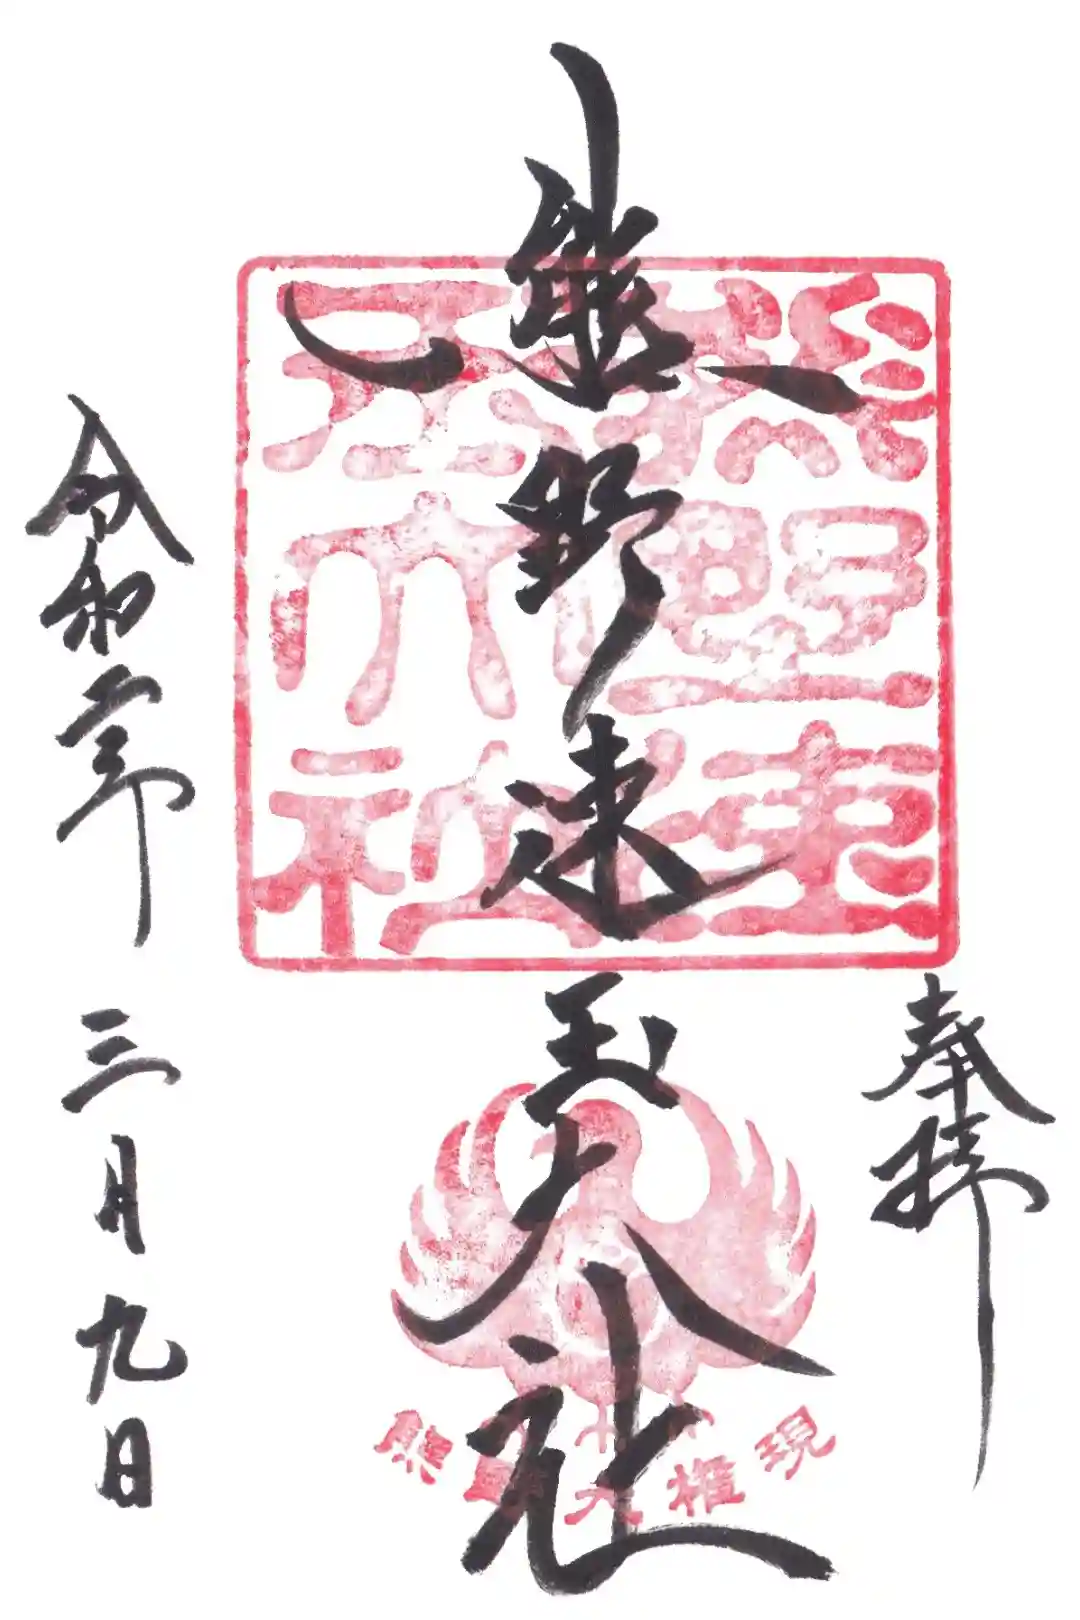 奉拝
熊野速玉大社
熊野速玉大社
熊野大權現
令和年三月九日